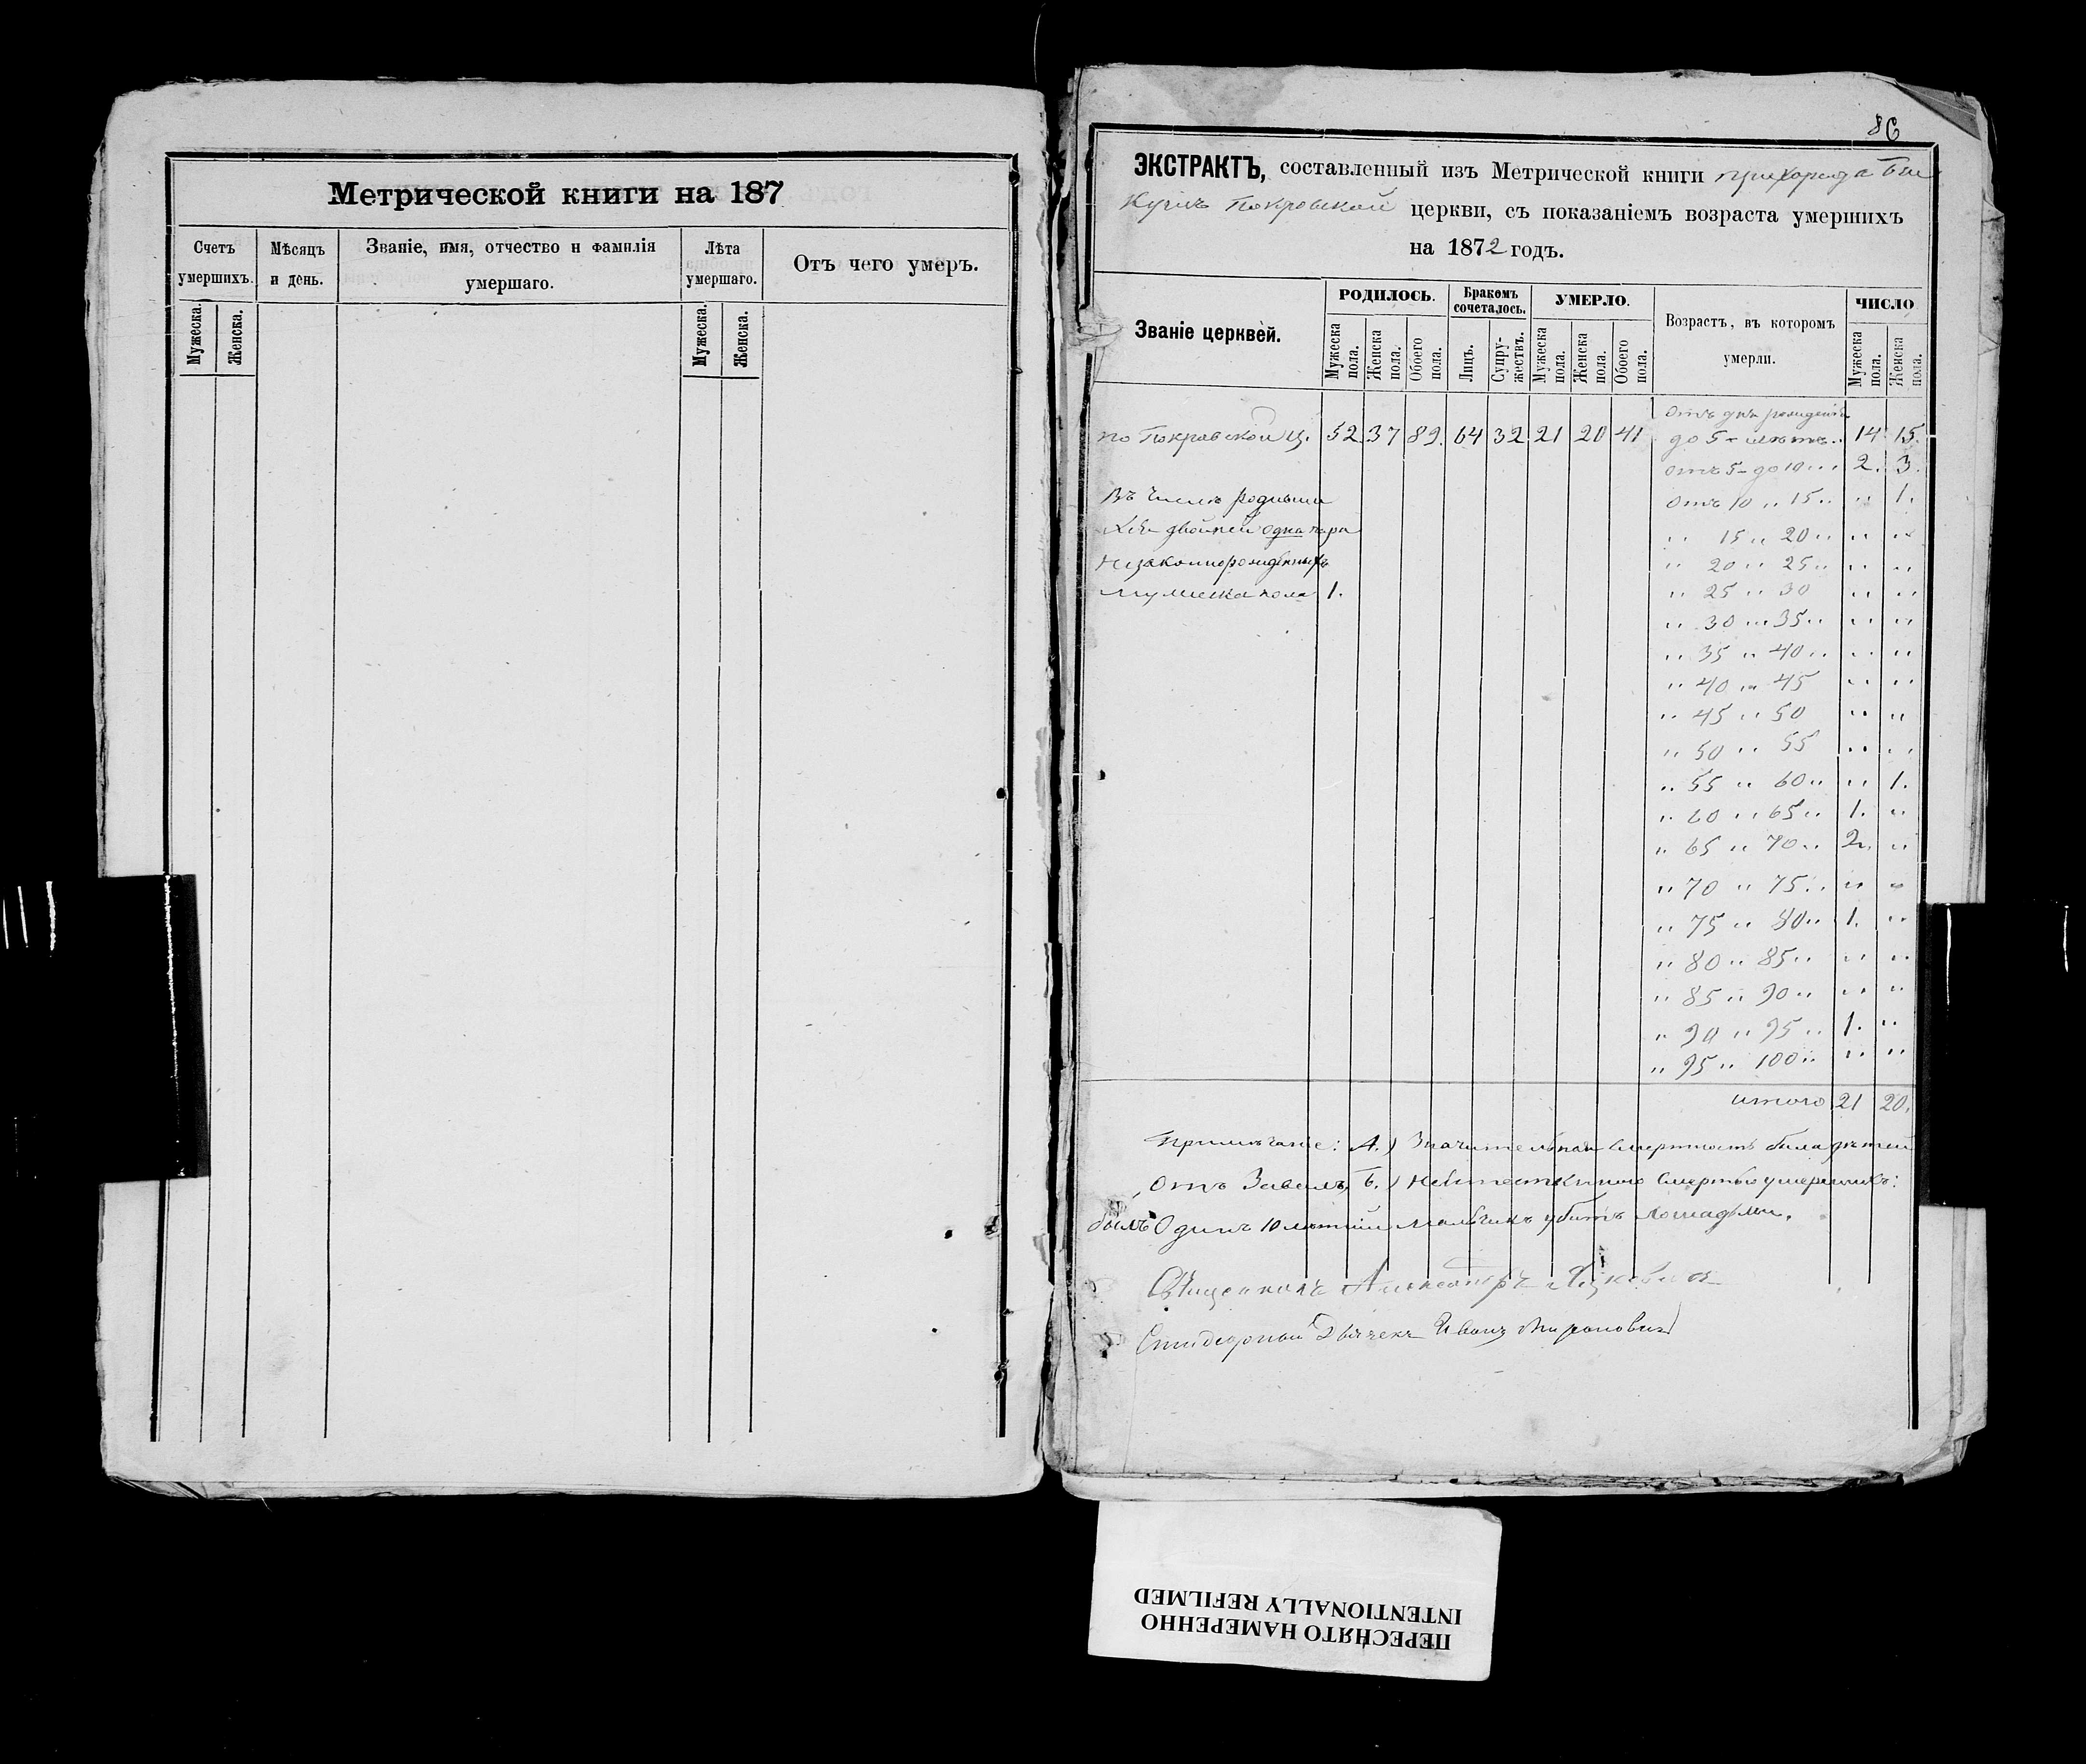 Метрической книги на 187
Счетъ умершихъ.
Мѣсяцъ и день.
Званіе, имя, отчество и фамилія умершаго.
Лѣта умершаго.
Отъ чего умеръ.
Мужеска. Женска.
Мужеска. Женска.
86
ЭКСТРАКТЪ, составленный изъ Метрической книги
Покровской церкви, съ показаніемъ возраста умершихъ
на 1872 годъ.
Званіе церквей.
РОДИЛОСЬ.
Бракомъ сочеталось.
УМЕРЛО.
Возрастъ, въ которомъ умерли.
ЧИСЛО
Мужеска пола. Женска пола. Обоего пола. Лицъ. Супружествъ. Мужеска пола. Женска пола. Обоего пола. Мужеска пола. Женска пола.
отъ дня рожденія
по Покровской ц. 52 37 89. 64 32 21 20 41 до 5-лѣтъ.. 14 15.
отъ 5-до 10... 2. 3.
Въ числѣ родивши отъ 10 „ 15 „ „ 1.
хся двойней одна пара „ 15 „ 20 „ „ „
незаконнорожденныхъ „ 20 „ 25 „ „ „
мужеска пола 1. „ 25 „ 30 „ „
„ 30 „ 35 „ „ „
„ 35 „ 40 „ „ „
„ 40 „ 45 „ „
„ 45 „ 50 „ „
„ 50 „ 55 „ „
„ 55 „ 60 „ „ 1.
„ 60 „ 65 „ 1. „
„ 65 „ 70 „ 2. „
„ 70 „ 75 „ „ „
„ 75 „ 80 „ 1. „
„ 80 „ 85 „ „ „
„ 85 „ 90 „ „ „
„ 90 „ 95 „ 1. „
„ 95 „ 100 „ „ „
итого 21 20.
Примѣчаніе: А.) Значительная смертность была дѣтей
отъ Б.) смертью умершихъ:
былъ Одинъ 10 лѣтній мальчикъ убитъ лошадьми.
Священникъ Александръ
Дьячекъ Иванъ Мироновичъ
ПЕРЕСНЯТО НАМЕРЕННО
INTENTIONALLY REFILMED